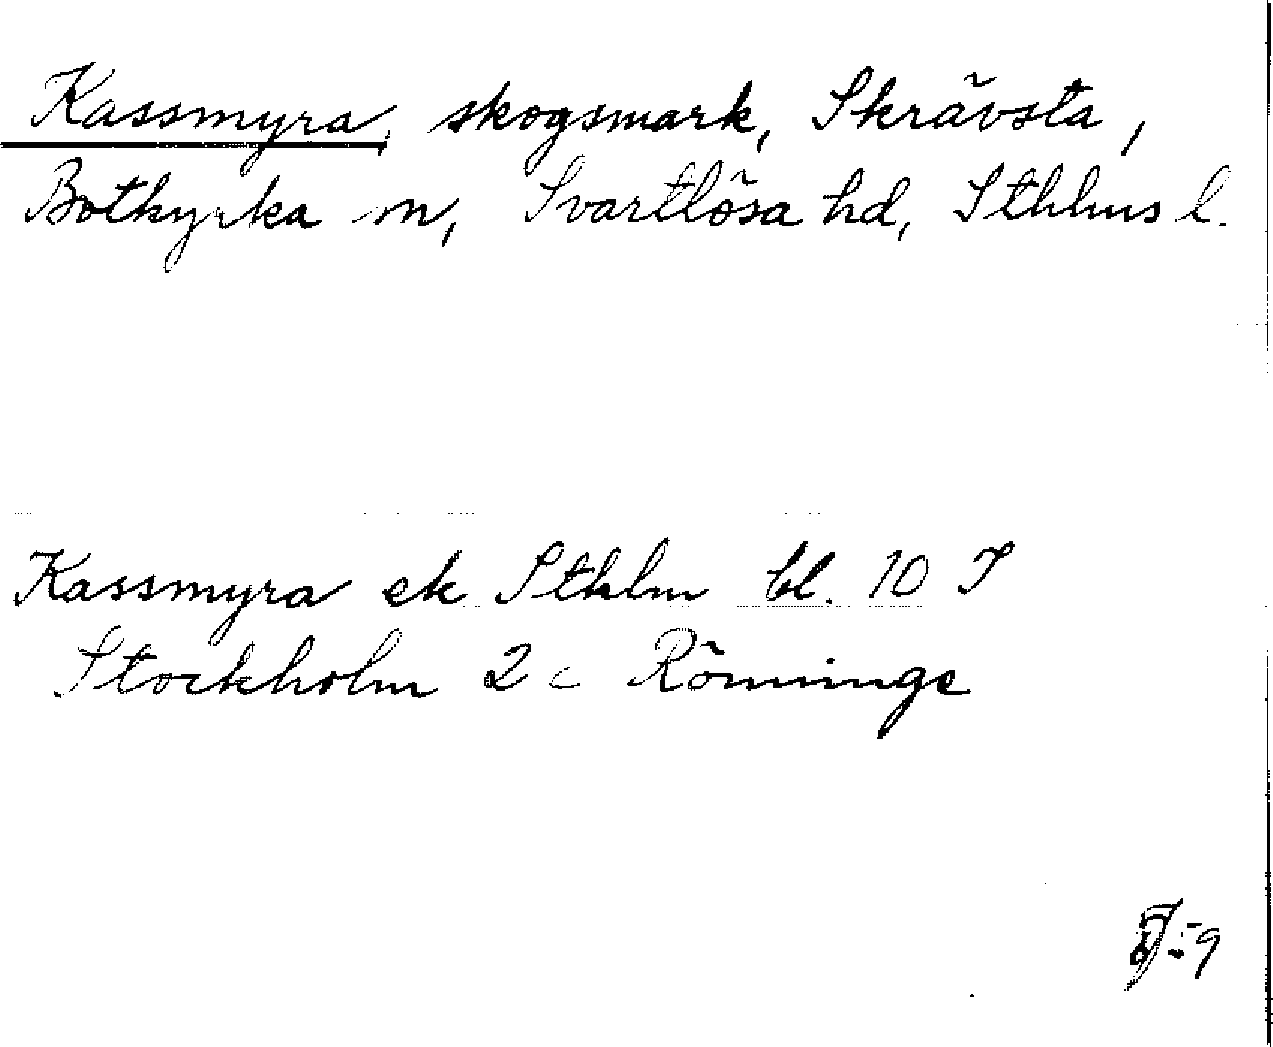 Kassmyra, skogsmark, Skrävsta,
Botkyrka sn, Svartlösa hd, Sthlms l.
Kassmyra ek Sthlm bl. 10 I
Stockholm 2 c Rönninge